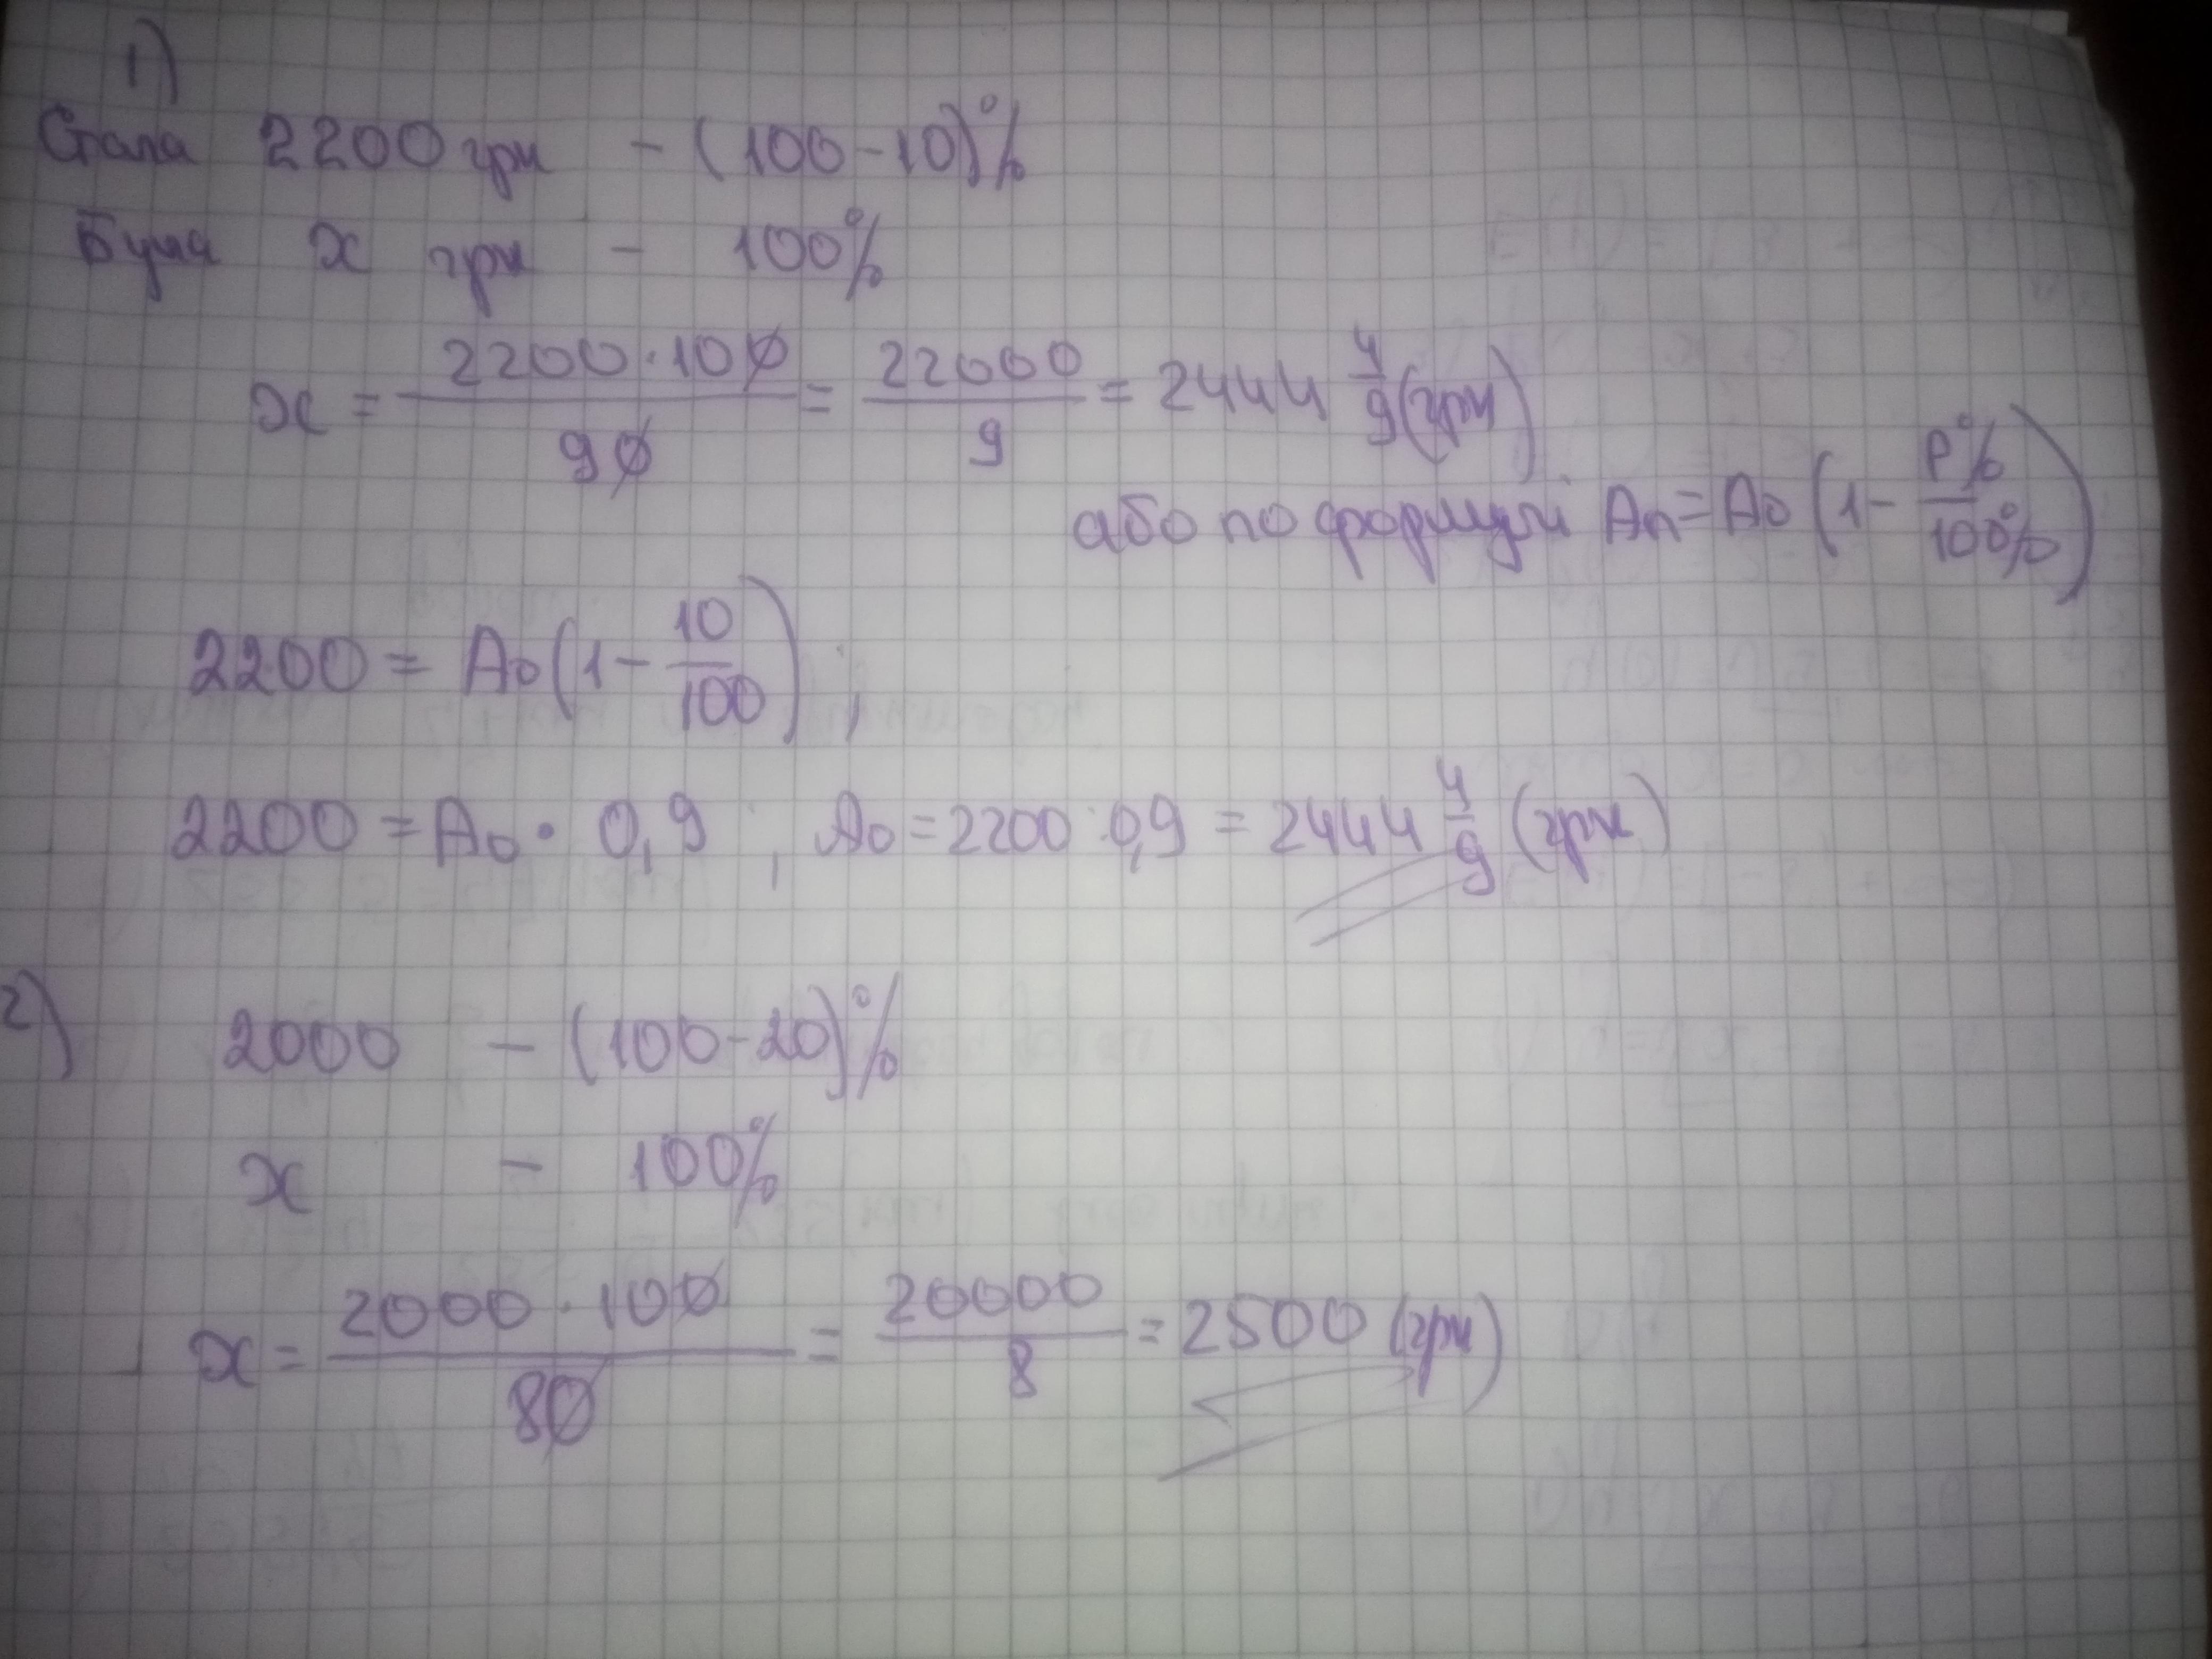 1)
Стала 2200 грн - (100-10)%
Була x грн - 100%
x = 2200·100/90 = 22000/9 = 2444 4/9 (грн)
або по формулі Aп = A₀ (1 - P%/100%)
2200 = A₀ (1 - 10/100) ;
2200 = A₀ · 0,9 , A₀ = 2200 : 0,9 = 2444 4/9 (грн)
2) 2000 - (100-20)%
x - 100%
x = 2000·100/80 = 20000/8 = 2500 (грн)